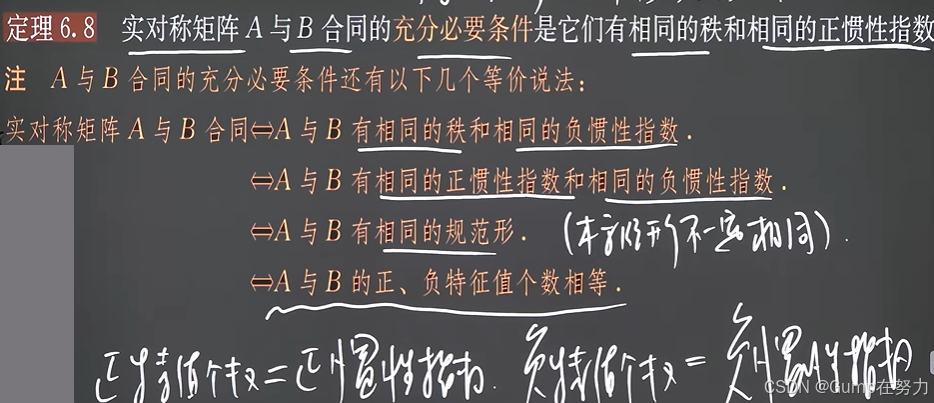 定理6.8 实对称矩阵A与B合同的充分必要条件是它们有相同的秩和相同的正惯性指数
注 A与B合同的充分必要条件还有以下几个等价说法：
实对称矩阵A与B合同⇔A与B有相同的秩和相同的负惯性指数．
⇔A与B有相同的正惯性指数和相同的负惯性指数．
⇔A与B有相同的规范形．（标准形不一定相同）．
⇔A与B的正、负特征值个数相等．
正特值个数=正惯性指数．负特值个数=负惯性指数
CSDN @Gump在努力